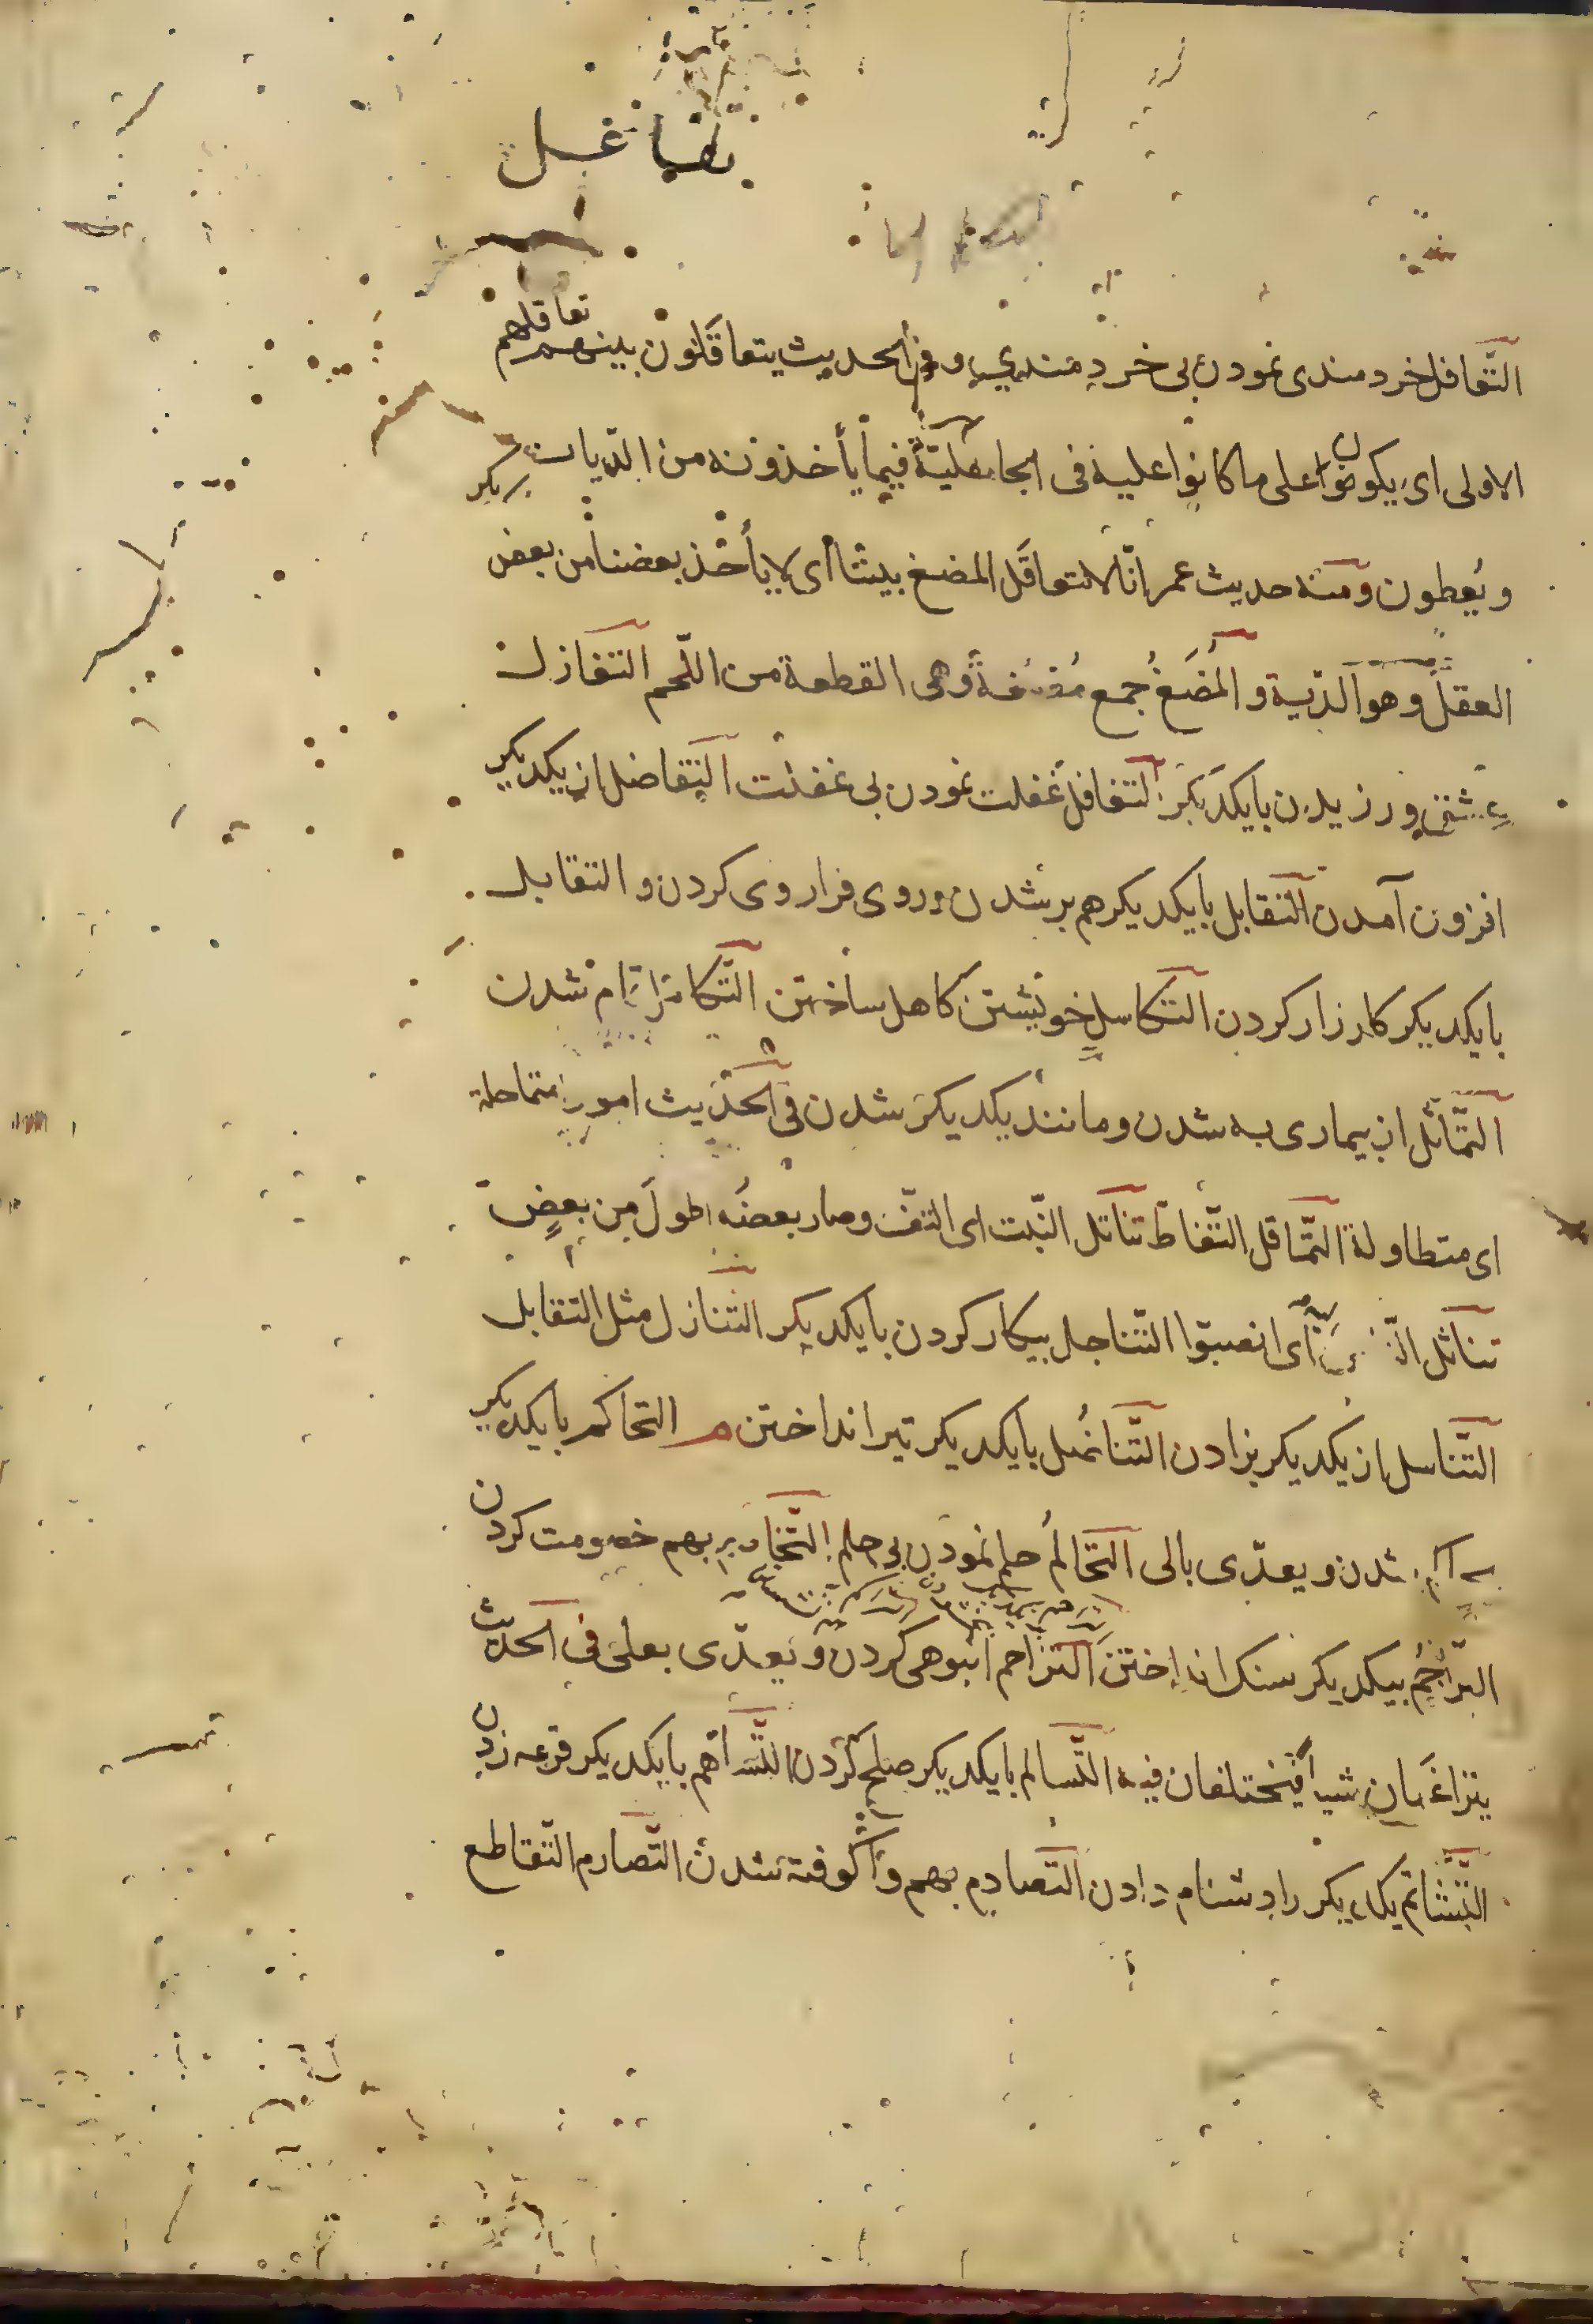 التّعاقل خردمندی نمودن بی خردمندی و فی الحدیث یتعاقلون بینهم تعاقلهم
الاولی ای یکونوا علی ما کانوا علیه فی الجاهلیّة فیما یأخذونه من الدّیات
و یُعطون و منه حدیث عمر انّا لا نتعاقَل المضغ بیننا ای لا یأخذ بعضنا من بعض
العقل و هو الدّیة و المُضَغُ جمع مُضغة وهی القطعة من اللّحم التّغازل
عشق ورزیدن بایکدیکر التّغافل غفلت نمودن بی غفلت التّفاضل از یکدیکر
افزون آمدن التّقابل بایکدیکر هم بر شدن و روی فراروی کردن و التقابل
بایکدیکر کارزار کردن التّکاسل خویشتن کاهل ساختن التّکامل تمام شدن
التّماثل از بیماری به شدن و مانند یکدیکر شدن فی الحدیث امور متماحلة
ای متطاولة التّماقل التّغاطّ تناتل النّبت ای التفّ و صار بعضُه اطولَ مِن بعضٍ
تناثل ای انصبّوا التّناجل بیکار کردن بایکدیکر التّنازل مثل التقابل
التّناسل از یکدیکر بزادن التّناضُل بایکدیکر تیر انداختن م التحاکم بایکدیکر
شدن و یعدّی بالی التّحالُم حلم نمودن بی حلم بهم خصومت کردن
التّراجُم بیکدیکر سنک انداختن التّزاحم انبوهی کردن و یعدّی بعلی فی الحدیث
یتزاغمان شیا فیختلفان فیه التّسالم بایکدیکر صلح کردن التّساهم بایکدیکر قرعه زدن
التّشاتم یکدیکر را دشنام دادن التّصادم بهم واکوفته شدن التّصارم التّقاطع